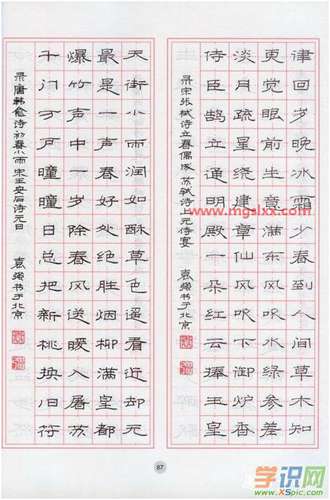 律回岁晚冰霜少春到人间草木知
更觉眼前生意满东风吹水绿参差
淡月疏星绕建章仙风吹下御炉香
侍臣鹄立通明殿一朵红云捧玉皇
录宋张栻诗立春偶成 苏轼诗上元侍宴
袁强书于北京
天街小雨润如酥草色遥看近却无
最是一年春好处绝胜烟柳满皇都
爆竹声中一岁除春风送暖入屠苏
千门万户曈曈日总把新桃换旧符
录唐韩愈诗初春小雨 宋王安石诗元日
袁强书于北京
www.mgslxx.com
87
学识网
www.XSpic.com